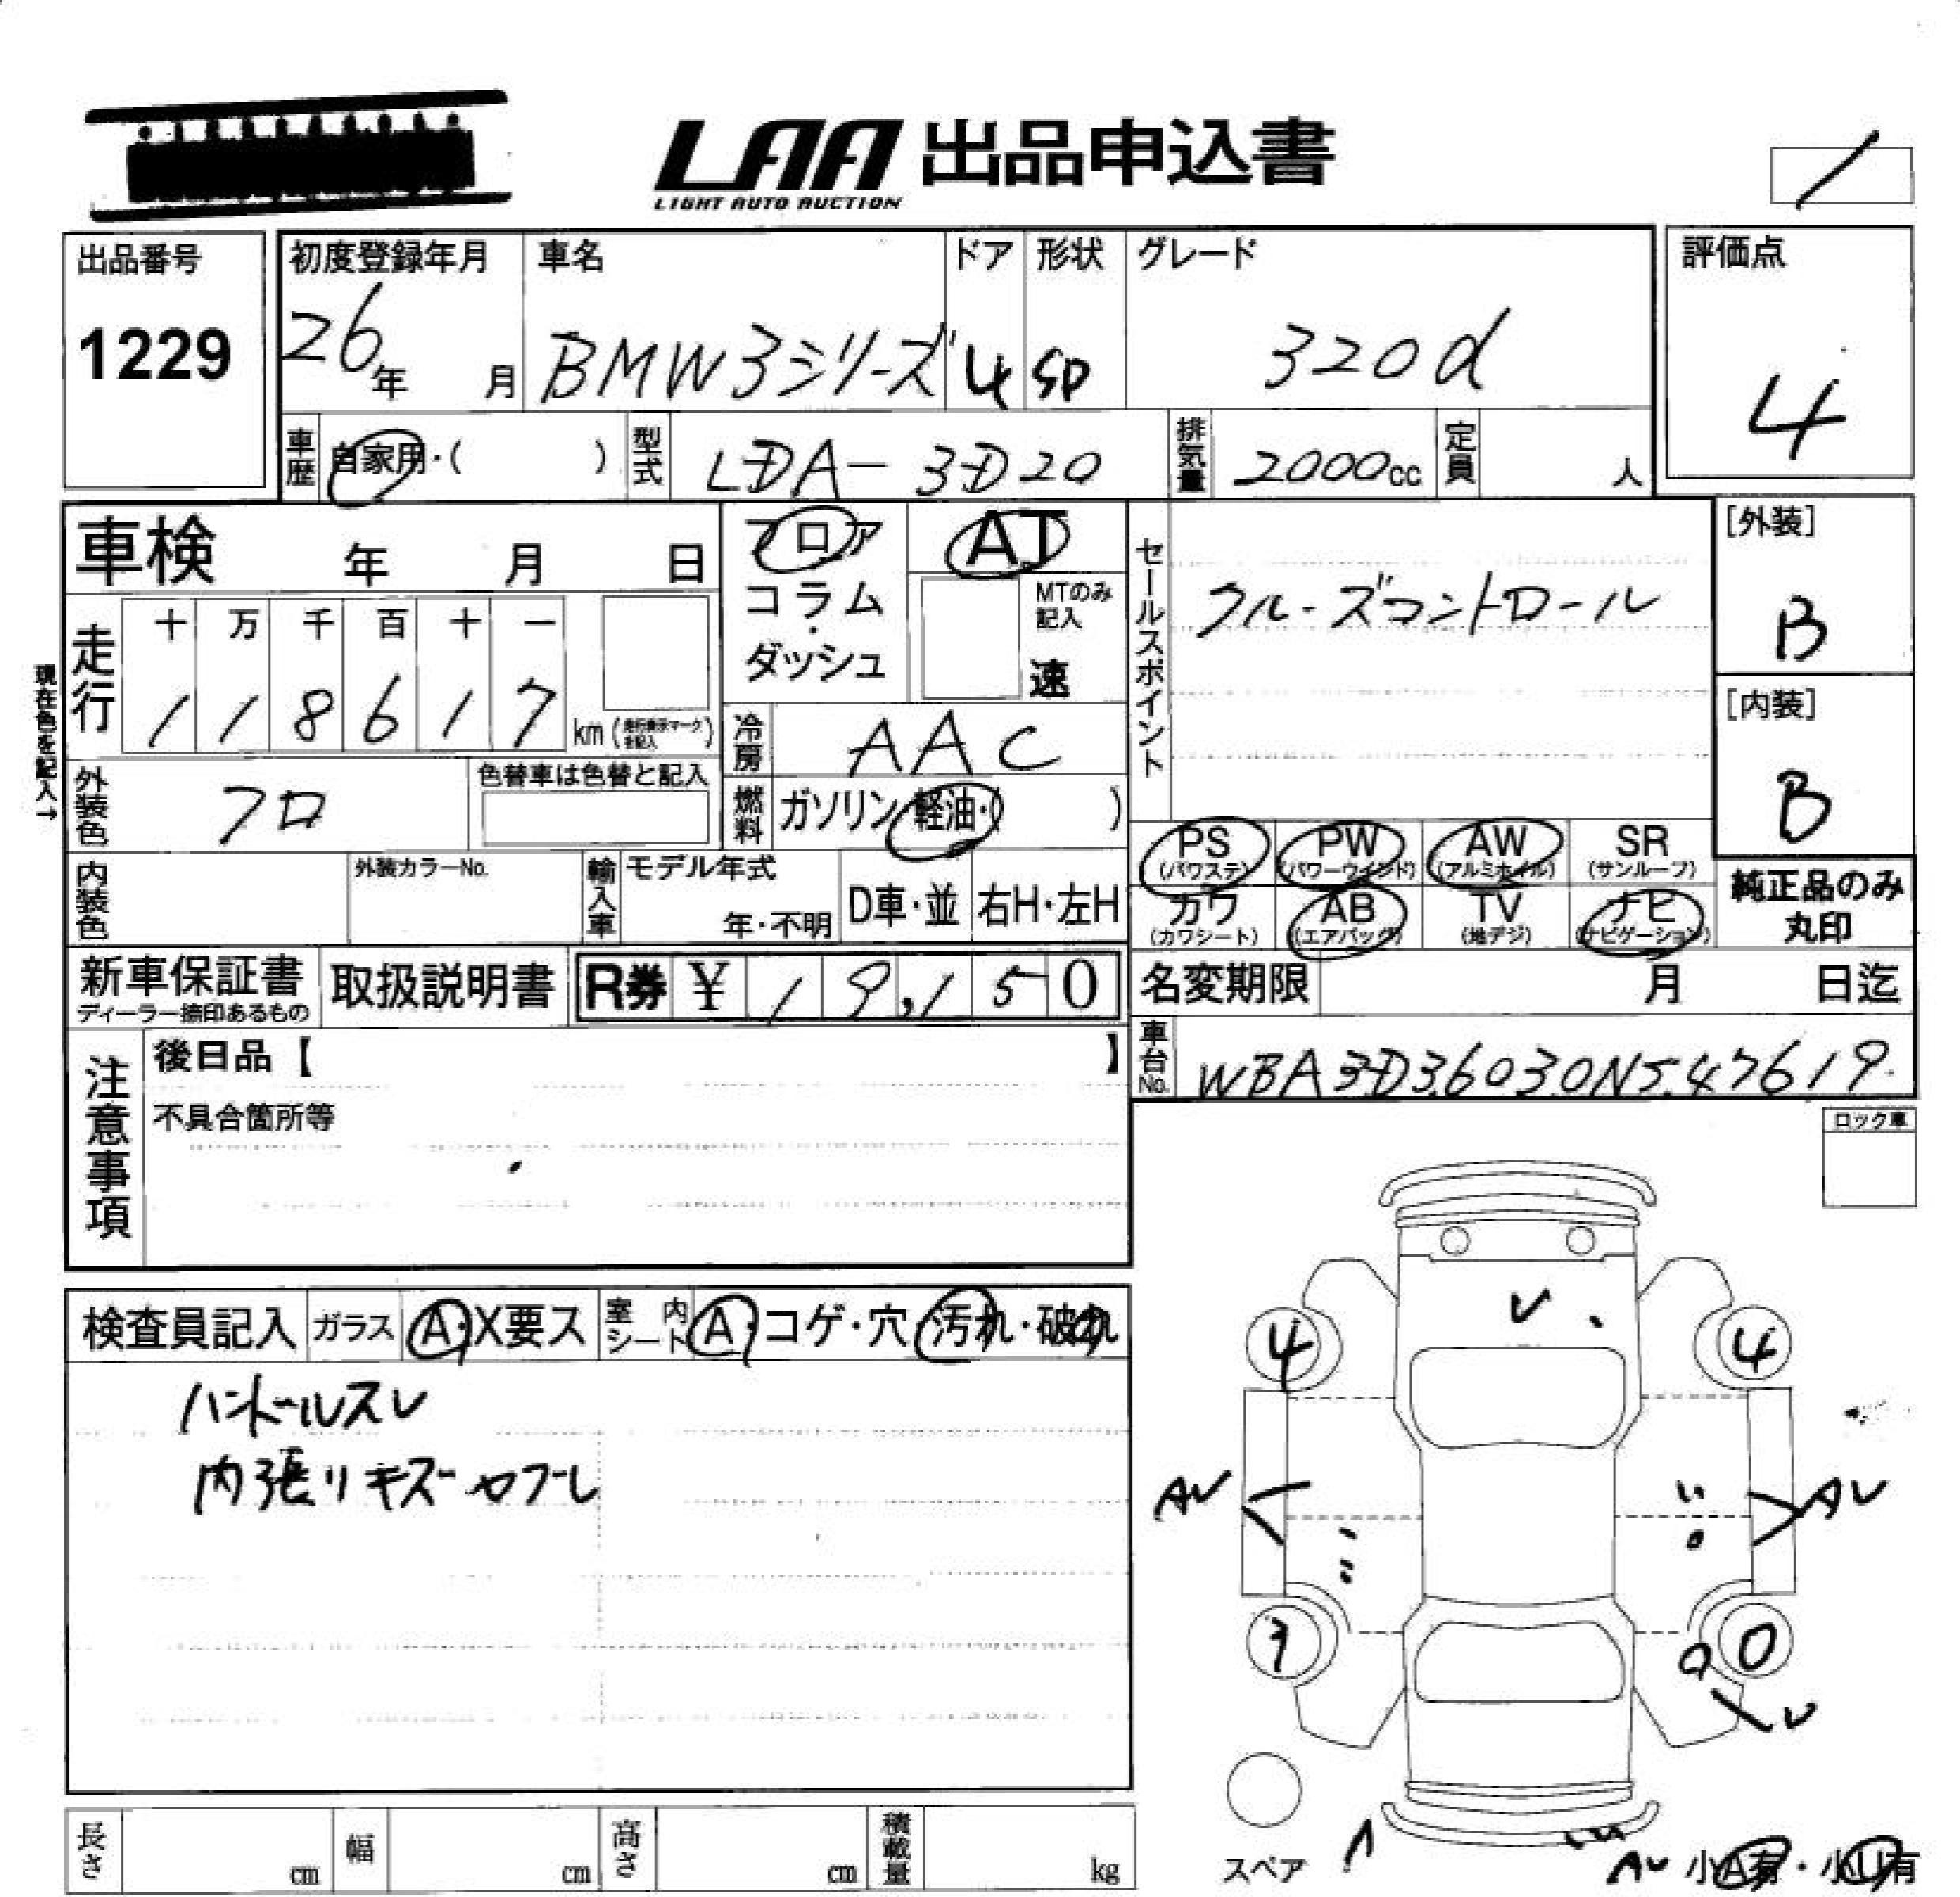 LAA 出品申込書
LIGHT AUTO AUCTION
出品番号
1229
初度登録年月
26年 月
車名
BMW3シリーズ
ドア
4
形状
SD
グレード
320d
評価点
4
車歴 自家用・( )
型式 LDA-3D20
排気量 2000cc
定員 人
車検 年 月 日
フロア
コラム
・
ダッシュ
AT
MTのみ
記入
速
セールスポイント
クルーズコントロール
[外装]
B
[内装]
B
現在色を記入→
走行
十 万 千 百 十 一
1 1 8 6 1 7 km (走行表示マークを記入)
冷房 AAC
外装色 クロ
色替車は色替と記入
燃料 ガソリン・軽油・( )
内装色
外装カラーNo.
輸入車
モデル年式
年・不明
D車・並
右H・左H
PS
(パワステ)
PW
(パワーウインド)
AW
(アルミホイル)
SR
(サンルーフ)
カワ
(カワシート)
AB
(エアバッグ)
TV
(地デジ)
ナビ
(ナビゲーション)
純正品のみ
丸印
新車保証書
ディーラー捺印あるもの
取扱説明書
R券 ¥ 19,150
名変期限 月 日迄
車台No. WBA3D36030NS47619
注意事項
後日品【 】
不具合箇所等
ロック車
検査員記入
ガラス A・X要ス
室内シート A・コゲ・穴・汚れ・破れ
ハンドルスレ
内張りキズ
U
4
4
AU
AU
3
0
U
スペア
AU 小A有・小U有
長さ cm
幅 cm
高さ cm
積載量 kg